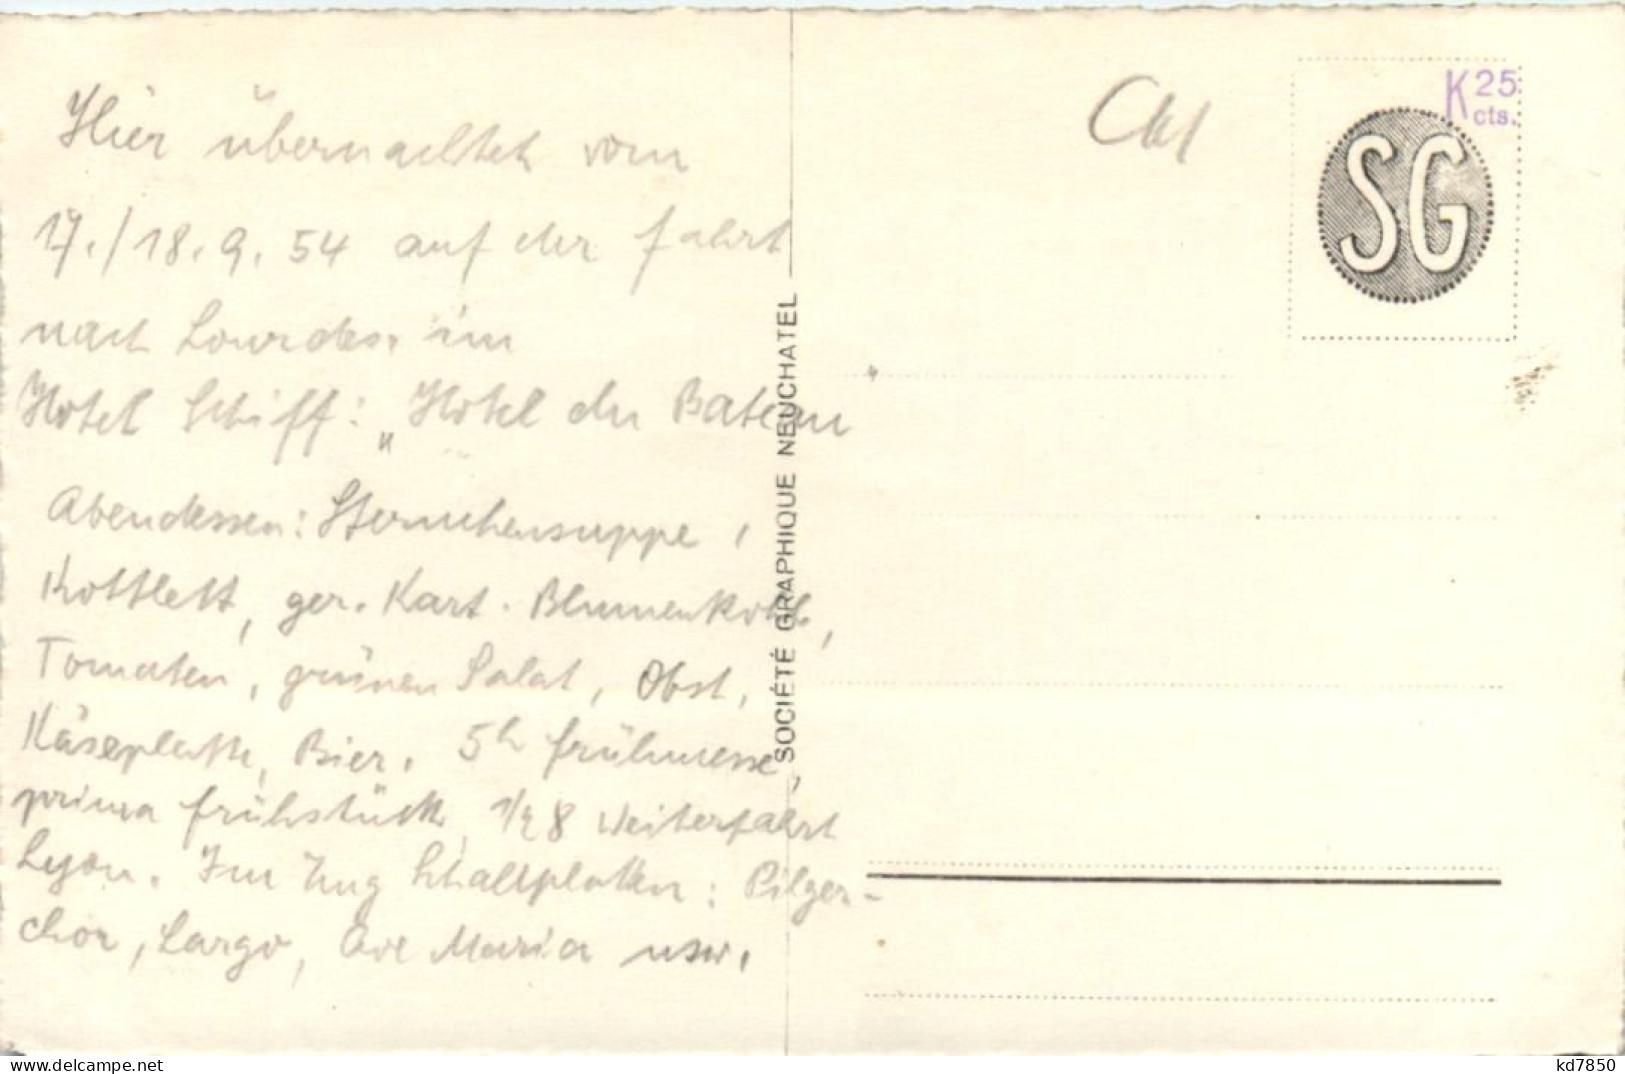 Hier übernachtet vom
17./18.9.54 auf der Fahrt
nach Lourdes. im
Hotel Schiff: „Hotel du Bateau"
Abendessen: Sternchensuppe,
Kottlett, ger. Kart. Blumenkohl,
Tomaten, grünen Salat, Obst,
Käseplatte, Bier. 5h Frühmesse,
prima Frühstück, 1/2 8 Weiterfahrt
Lyon. Im Zug Schallplatten: Pilger-
chor, Largo, Ave Maria usw.
SOCIÉTÉ GRAPHIQUE NEUCHATEL
CH
K 25
cts.
SG
www.delcampe.net
kd7850